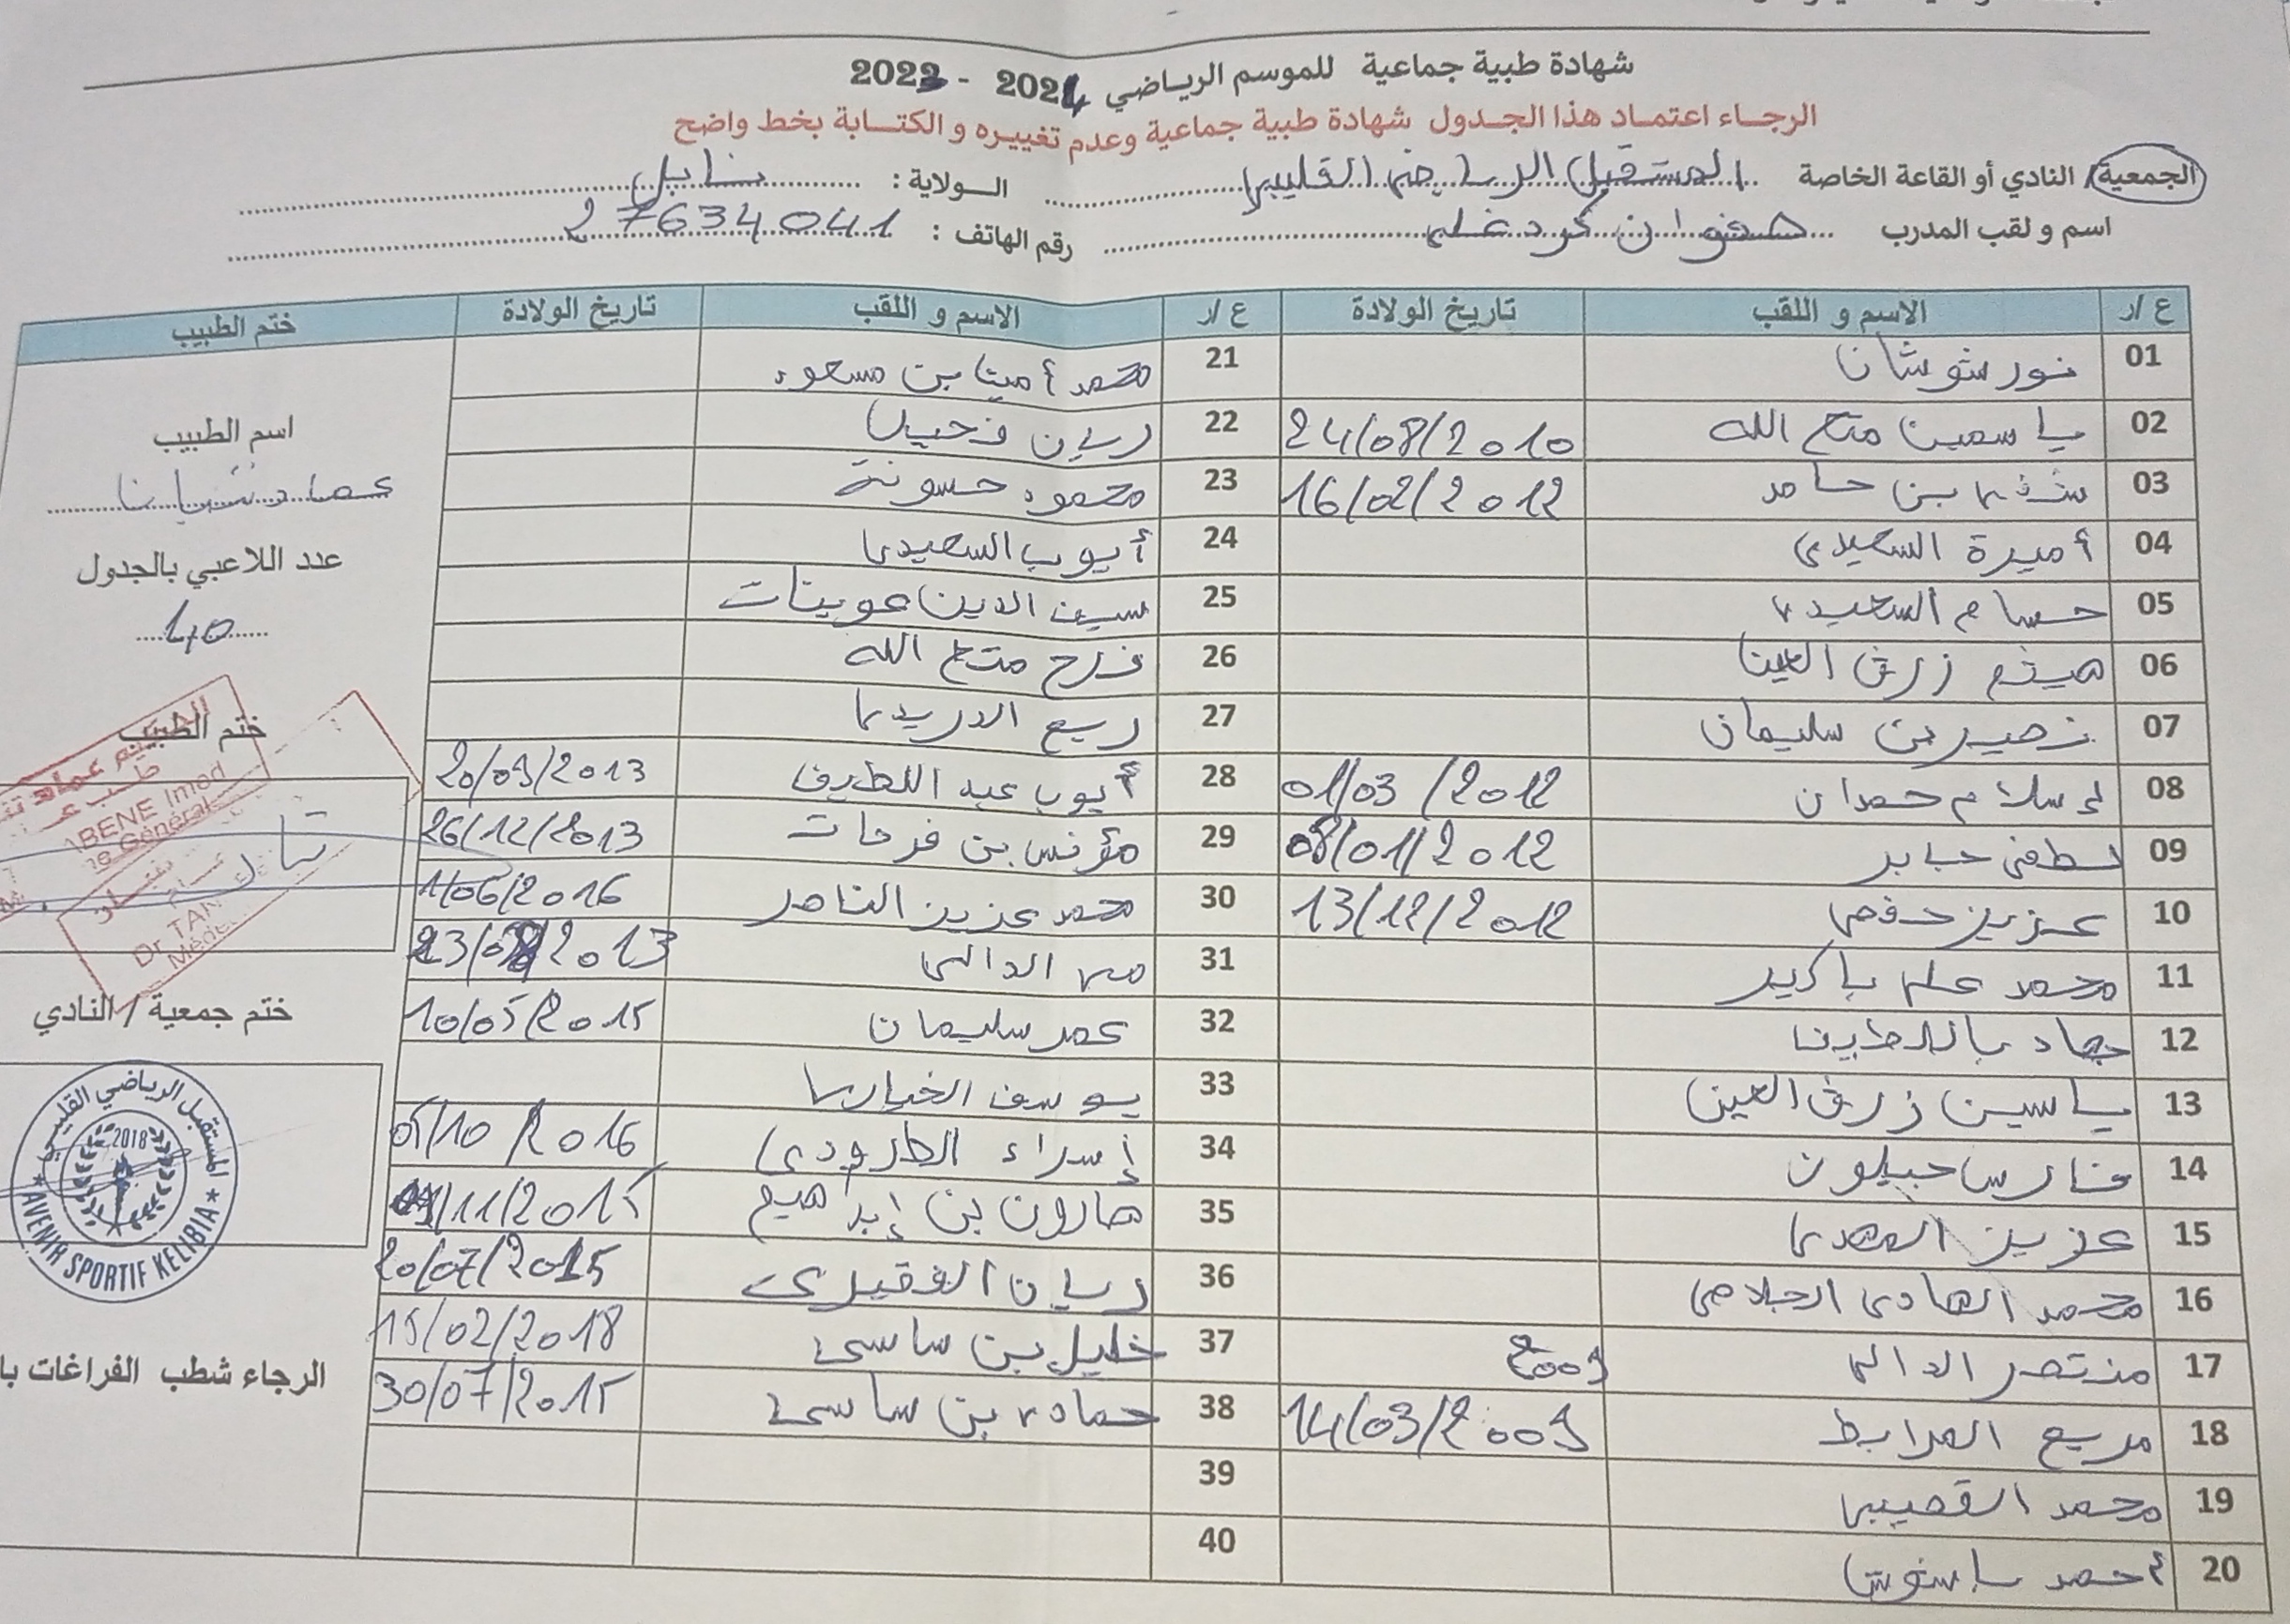 شهادة طبية جماعية للموسم الرياضي 2024 - 2023
الرجاء اعتماد هذا الجدول شهادة طبية جماعية وعدم تغييره و الكتابة بخط واضح
الجمعية/ النادي أو القاعة الخاصة المستقبل الرياضي القليبي الولاية : نابل
اسم و لقب المدرب صفوان كردغلي رقم الهاتف : 27634041
ع /ر الاسم و اللقب تاريخ الولادة ع /ر الاسم و اللقب تاريخ الولادة ختم الطبيب
01 نور شوشان
02 ياسمين متع الله 24/08/2010
03 شذى بن حامد 16/02/2012
04 أميرة السعيدي
05 حسام السعيدي
06 هيثم زرق العين
07 نصير بن سليمان
08 إسلام حمدان 01/03/2012
09 لطفي جابر 08/01/2012
10 عزيز حفصي 13/12/2012
11 محمد علي باكير
12 جهاد باللطيف
13 ياسين زرق العين
14 فارس حبيلون
15 عزيز المهدي
16 محمد الهادي الجلاصي
17 منتصر الدالي 2009
18 مريع المرابط 14/03/2009
19 محمد القصيبي
20 أحمد
21 محمد أمين بن مسعود
22 ريان فحيل
23 محمود حسونة
24 أيوب السعيدي
25 سيف الدين عوينات
26 فرح متع الله
27 ربيع الدريدي
28 أيوب عبد اللطيف 20/09/2013
29 مؤنس بن فرحات 26/12/2013
30 محمد عزيز الناصر 1/06/2016
31 مي الدالي 2013
32 عمر سليمان 10/05/2015
33 يوسف الخياري
34 إسراء الطرودي 05/10/2016
35 هارون بن إبراهيم 11/2015
36 ريان الفقيري 20/07/2015
37 خليل بن ساسي 15/02/2018
38 حمادي بن ساسي 30/07/2015
39
40
اسم الطبيب
عماد
عدد اللاعبي بالجدول
40
ختم الطبيب
ABENE Imed
le Général
Dr TAN
Méde
ختم جمعية / النادي
المستقبل الرياضي القليبي
2018
★ AVENIR SPORTIF KELIBIA ★
الرجاء شطب الفراغات با